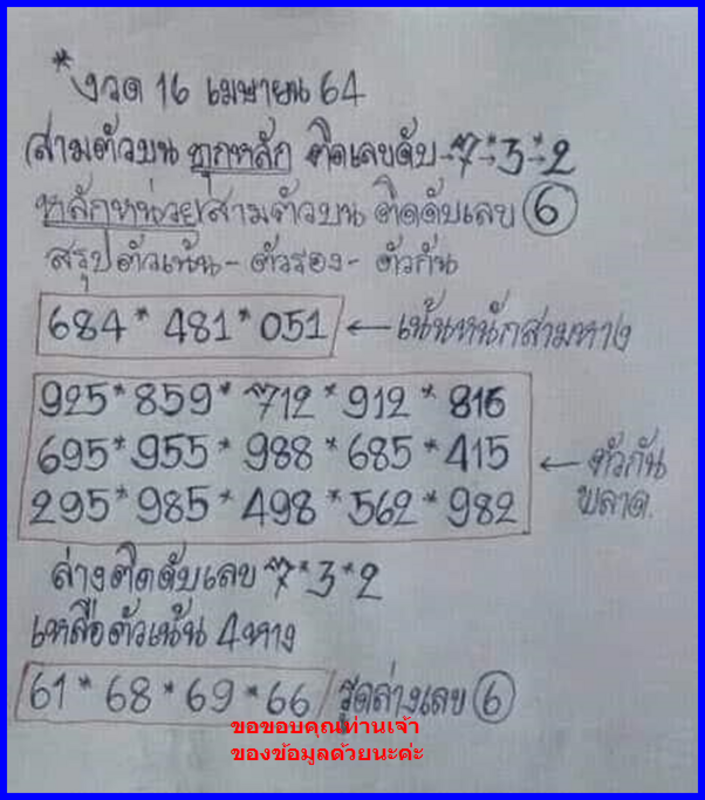 *งวด 16 เมษายน 64
สามตัวบน ทุกหลัก ติดเลขดับ→7*→3*→2
หลักหน่วยสามตัวบน ติดดับเลข 6
สรุปตัวเน้น - ตัวรอง - ตัวกัน
684*481*051 ←เน้นหนักสามทาง
925*859*712*912*816
695*955*988*685*415 ←ตัวกัน
พลาด.
295*985*498*562*982
ล่างติดดับเลข 7*3*2
เหลือตัวเน้น 4ทาง
61*68*69*66 รูดล่างเลข 6
ขอขอบคุณท่านเจ้า
ของข้อมูลด้วยนะค่ะ